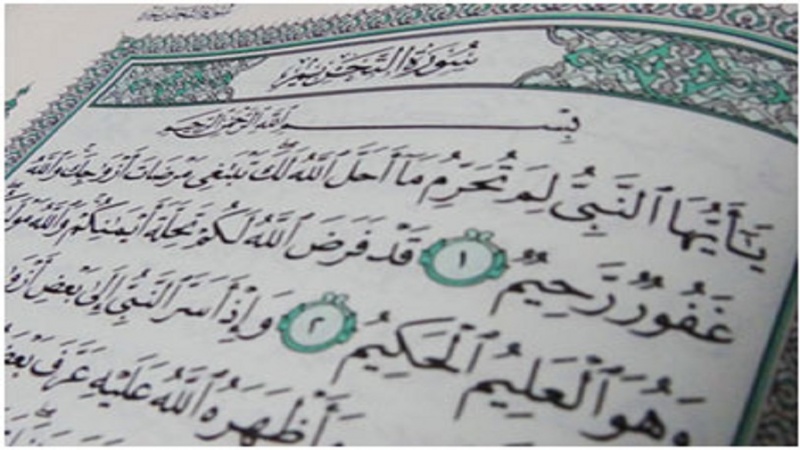 سُورَةُ التَّحْرِيمِ
بِسْمِ ٱللَّهِ ٱلرَّحْمَٰنِ ٱلرَّحِيمِ
يَٰٓأَيُّهَا ٱلنَّبِيُّ لِمَ تُحَرِّمُ مَآ أَحَلَّ ٱللَّهُ لَكَ تَبْتَغِى مَرْضَاتَ أَزْوَٰجِكَ وَٱللَّهُ
غَفُورٌ رَّحِيمٌ ١ قَدْ فَرَضَ ٱللَّهُ لَكُمْ تَحِلَّةَ أَيْمَٰنِكُمْ وَٱللَّهُ
وَهُوَ ٱلْعَلِيمُ ٱلْحَكِيمُ ٢ وَإِذْ أَسَرَّ ٱلنَّبِيُّ إِلَىٰ بَعْضِ
وَأَظْهَرَهُ ٱللَّهُ عَلَيْهِ عَرَّفَ